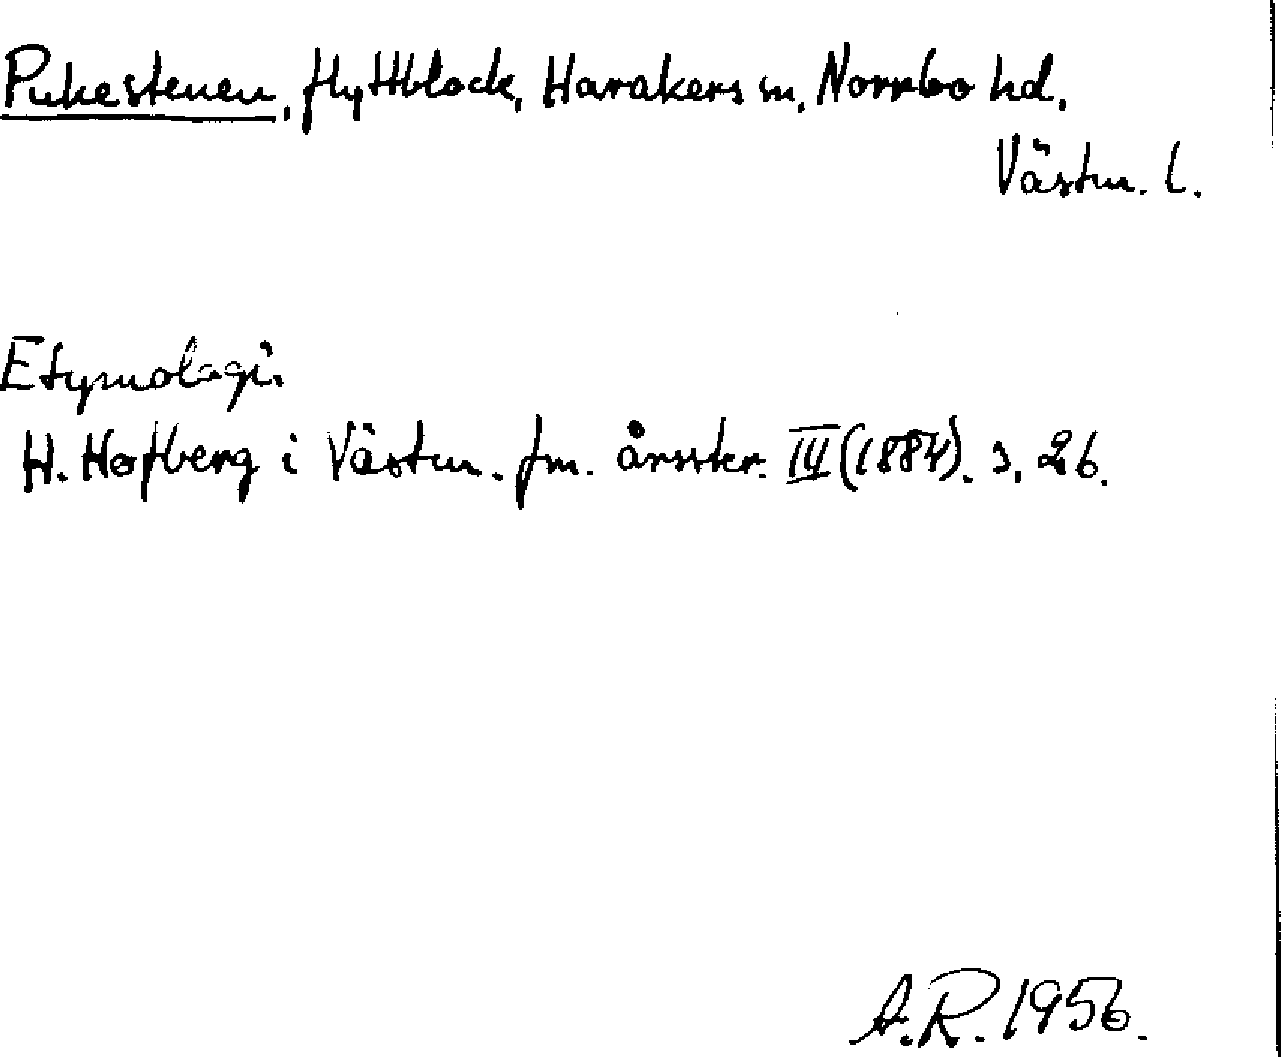 Pukestenen, flyttblock, Harakers sn, Norrbo hd,
Västm. l.
Etymologi:
H. Hofberg i Västm. fm. årsskr. III (1884). s. 26.
A.R. 1956.